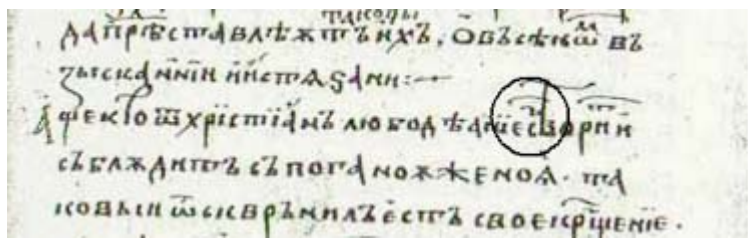 такоды
да прѣставлѣѫтъ ихъ, ѿвъсѣкѡⷧ҇ въ
ꙁысканїи и истѧꙁани:~
аще кто ѿ хрїстїанъ любодѣанїе сътворитⸯ и
съблѫдитъ съ поганоѫ женоѧ. та
ковыи ѿскврънилъ естъ свое крⷭ҇щенїе.